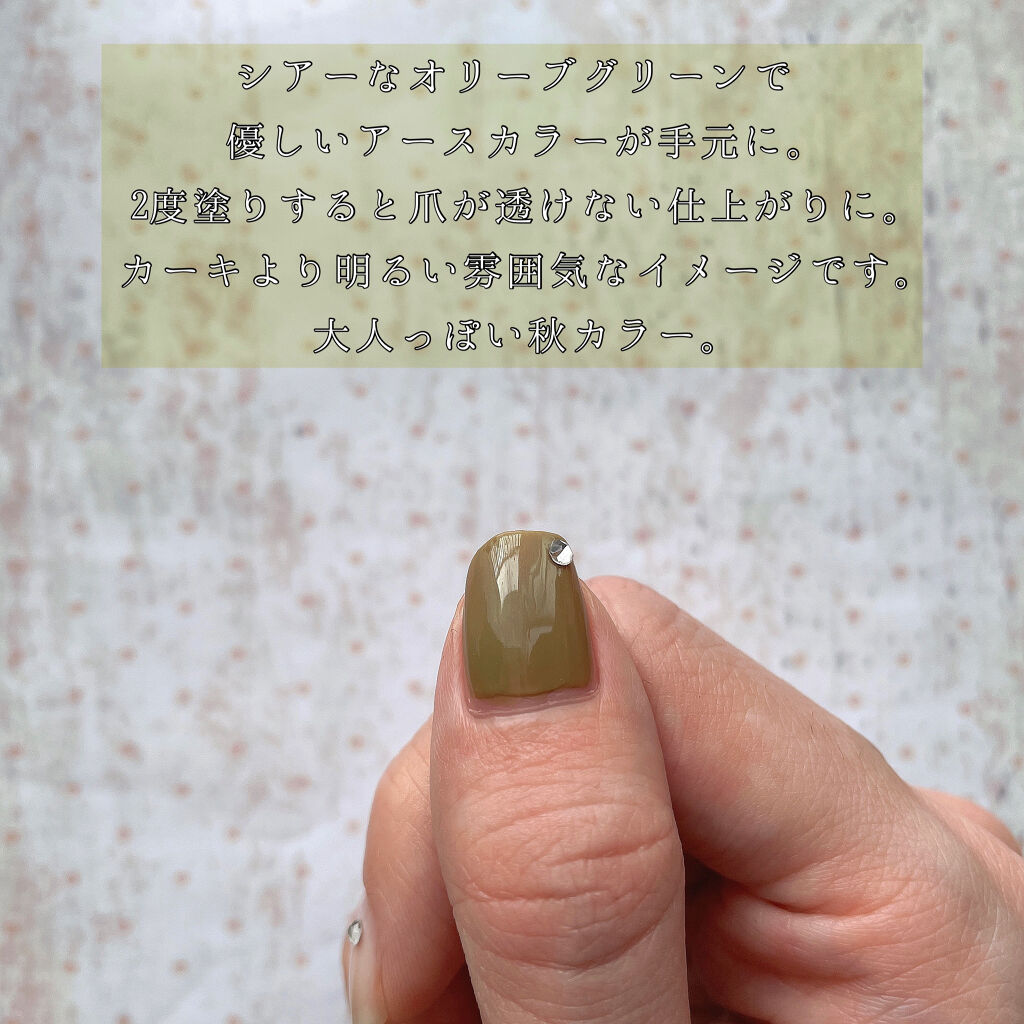 シアーなオリーブグリーンで
優しいアースカラーが手元に。
2度塗りすると爪が透けない仕上がりに。
カーキより明るい雰囲気なイメージです。
大人っぽい秋カラー。